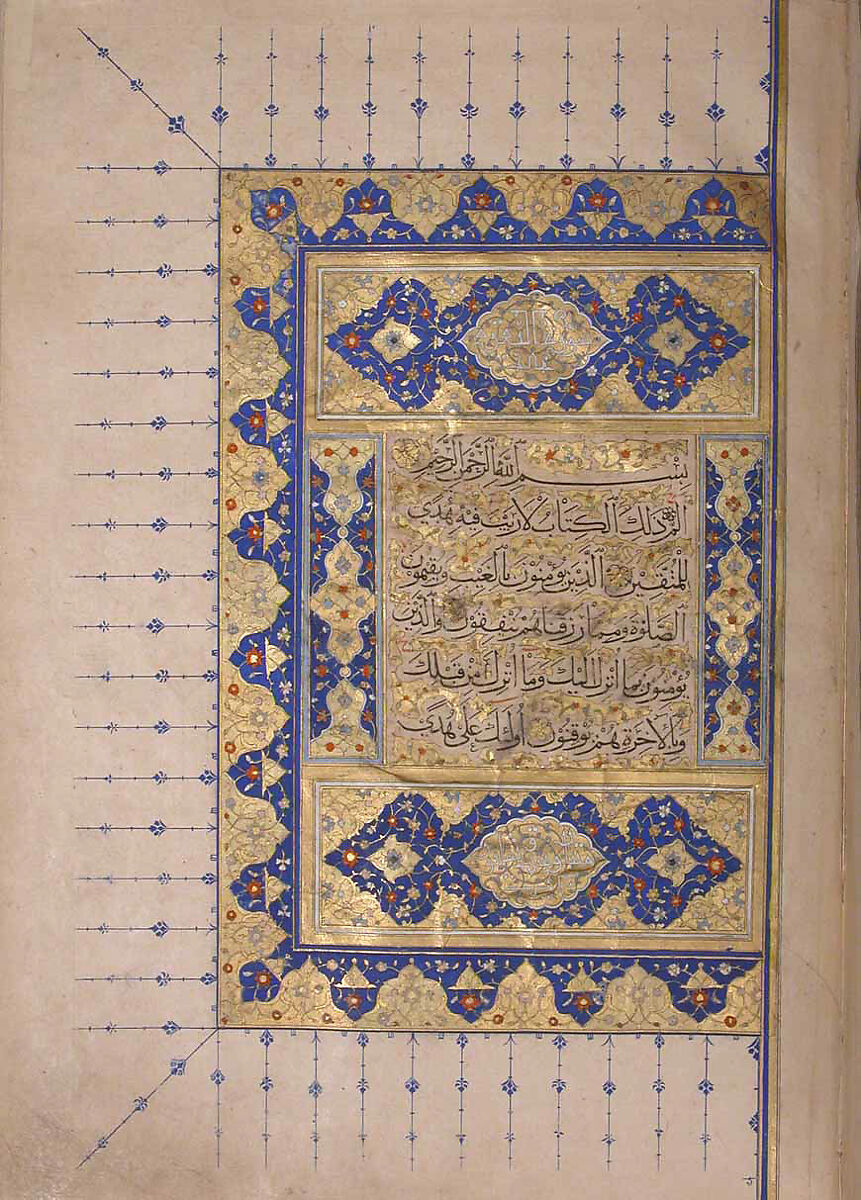 سورة البقرة
بِسْمِ اللهِ الرَّحْمٰنِ الرَّحِيمِ
الم ذٰلِكَ الْكِتَابُ لَا رَيْبَ فِيهِ هُدًى
لِلْمُتَّقِينَ الَّذِينَ يُؤْمِنُونَ بِالْغَيْبِ وَيُقِيمُونَ
الصَّلٰوةَ وَمِمَّا رَزَقْنَاهُمْ يُنْفِقُونَ وَالَّذِينَ
يُؤْمِنُونَ بِمَا أُنْزِلَ إِلَيْكَ وَمَا أُنْزِلَ مِنْ قَبْلِكَ
وَبِالْآخِرَةِ هُمْ يُوقِنُونَ أُولٰئِكَ عَلٰى هُدًى